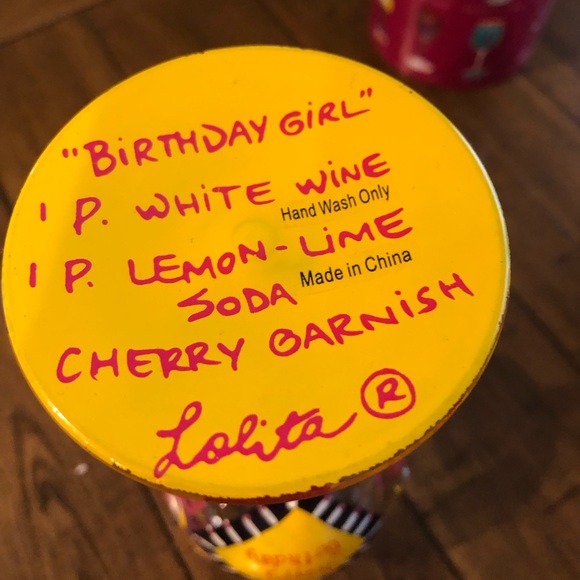 "BiRTHDAY GiRL"
1 P. WHiTE WiNE
Hand Wash Only
1 P. LEMON-LiME
Made in China
SODA
CHERRY GARNiSH
Lolita ®
Birthday